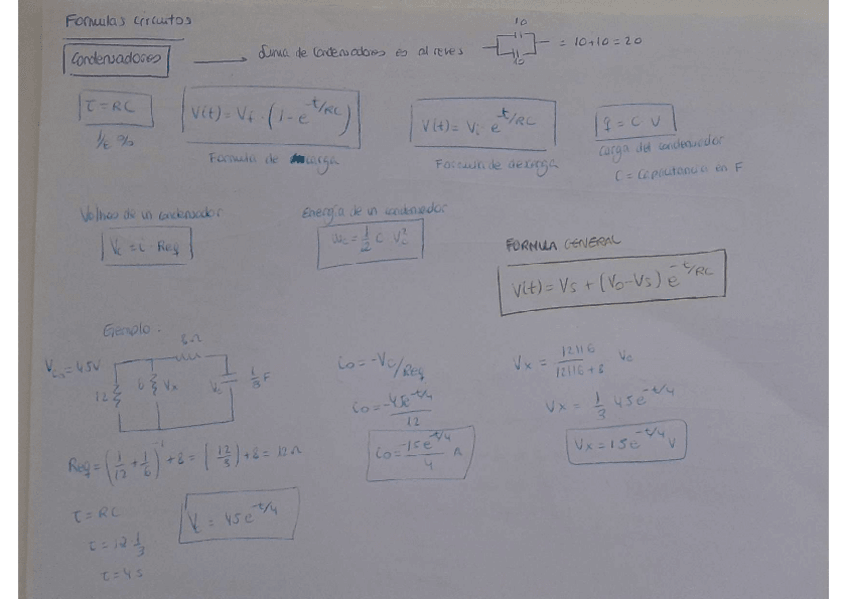 Formulas circuitos
Condensadores → Suma de condensadores es al reves 10 10 = 10+10 = 20
τ = RC
V(t) = Vf · (1 - e^-t/RC)
Formula de carga
V(t) = Vi · e^-t/RC
Formula de descarga
q = C V
Carga del condensador
C = Capacitancia en F
Voltaos de un condensador
Vc = i · Req
Energía de un condensador
Wc = 1/2 C Vc²
FORMULA GENERAL
V(t) = Vs + (Vo-Vs) e^-t/RC
Ejemplo:
Vco = 45V
12
6
Vx
8Ω
Vc
1/3 F
Req = (1/12 + 1/6)^-1 + 8 = (12/3) + 8 = 12Ω
τ = RC
τ = 12 1/3
τ = 4s
Vc = 45e^-t/4
io = -Vc/Req
io = -45e^-t/4 / 12
io = -15e^-t/4 / 4 A
Vx = 12116 / 12116 + 8 Vc
Vx = 1/3 45e^-t/4
Vx = 15e^-t/4 V